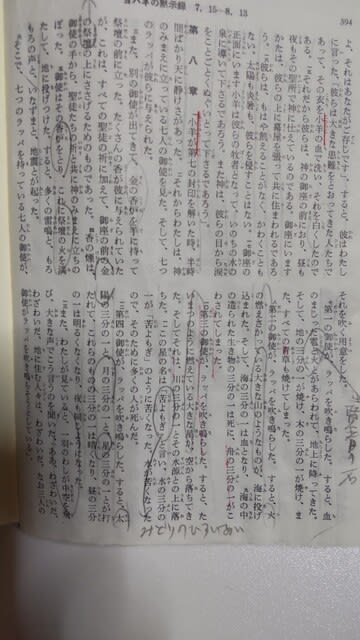 ヨハネの黙示録 7. 15―8. 13
394
よ、それはあなたがご存じです」。すると、彼はわたし
に言った、「彼らは大きな患難をとおってきた人たちで
あって、その衣を小羊の血で洗い、それを白くしたので
ある。それだから彼らは、神の御座の前におり、昼も
夜もその聖所で神に仕えているのである。御座にいます
かたは、彼らの上に幕屋を張って共に住まわれるであろ
う。彼らは、もはや飢えることがなく、かわくことも
ない。太陽も炎暑も、彼らを侵すことはない。御座の
正面にいます小羊は彼らの牧者となって、いのちの水の
泉に導いて下さるであろう。また神は、彼らの目から涙
をことごとくぬぐいとって下さるであろう」。
第八章
小羊が第七の封印を解いた時、半時
間ばかり天に静けさがあった。それからわたしは、神
のみまえに立っている七人の御使を見た。そして、七つ
のラッパが彼らに与えられた。
また、別の御使が出てきて、金の香炉を手に持って
祭壇の前に立った。たくさんの香が彼に与えられていた
が、これは、すべての聖徒の祈に加えて、御座の前の金
の祭壇の上にささげるためのものであった。香の煙は、
御使の手から、聖徒たちの祈と共に神のみまえに立ちの
ぼった。御使はその香炉をとり、これに祭壇の火を満
たして、地に投げつけた。すると、多くの雷鳴と、もろ
もろの声と、いなずまと、地震とが起った。
そこで、七つのラッパを持っている七人の御使が、
それを吹く用意をした。
第一の御使が、ラッパを吹き鳴らした。すると、血
のまじった雹と火とがあらわれて、地上に降ってきた。
そして、地の三分の一が焼け、木の三分の一が焼け、ま
た、すべての青草も焼けてしまった。
第二の御使が、ラッパを吹き鳴らした。すると、火
の燃えさかっている大きな山のようなものが、海に投げ
込まれた。そして、海の三分の一は血となり、海の中
の造られた生き物の三分の一は死に、舟の三分の一がこ
わされてしまった。
第三の御使が、ラッパを吹き鳴らした。すると、た
いまつのように燃えている大きな星が、空から落ちてき
た。そしてそれは、川の三分の一とその水源との上に落
ちた。この星の名は「苦よもぎ」と言い、水の三分の
一が「苦よもぎ」のように苦くなった。水が苦くなった
ので、そのために多くの人が死んだ。
第四の御使が、ラッパを吹き鳴らした。すると、太
陽の三分の一と、月の三分の一と、星の三分の一とが打
たれて、これらのものの三分の一は暗くなり、昼の三分
の一は明るくなくなり、夜も同じようになった。
また、わたしが見ていると、一羽のわしが中空を飛
び、大きな声でこう言うのを聞いた、「ああ、わざわいだ、
わざわいだ、地に住む人々は、わざわいだ。なお三人の
御使がラッパを吹き鳴らそうとしている」。